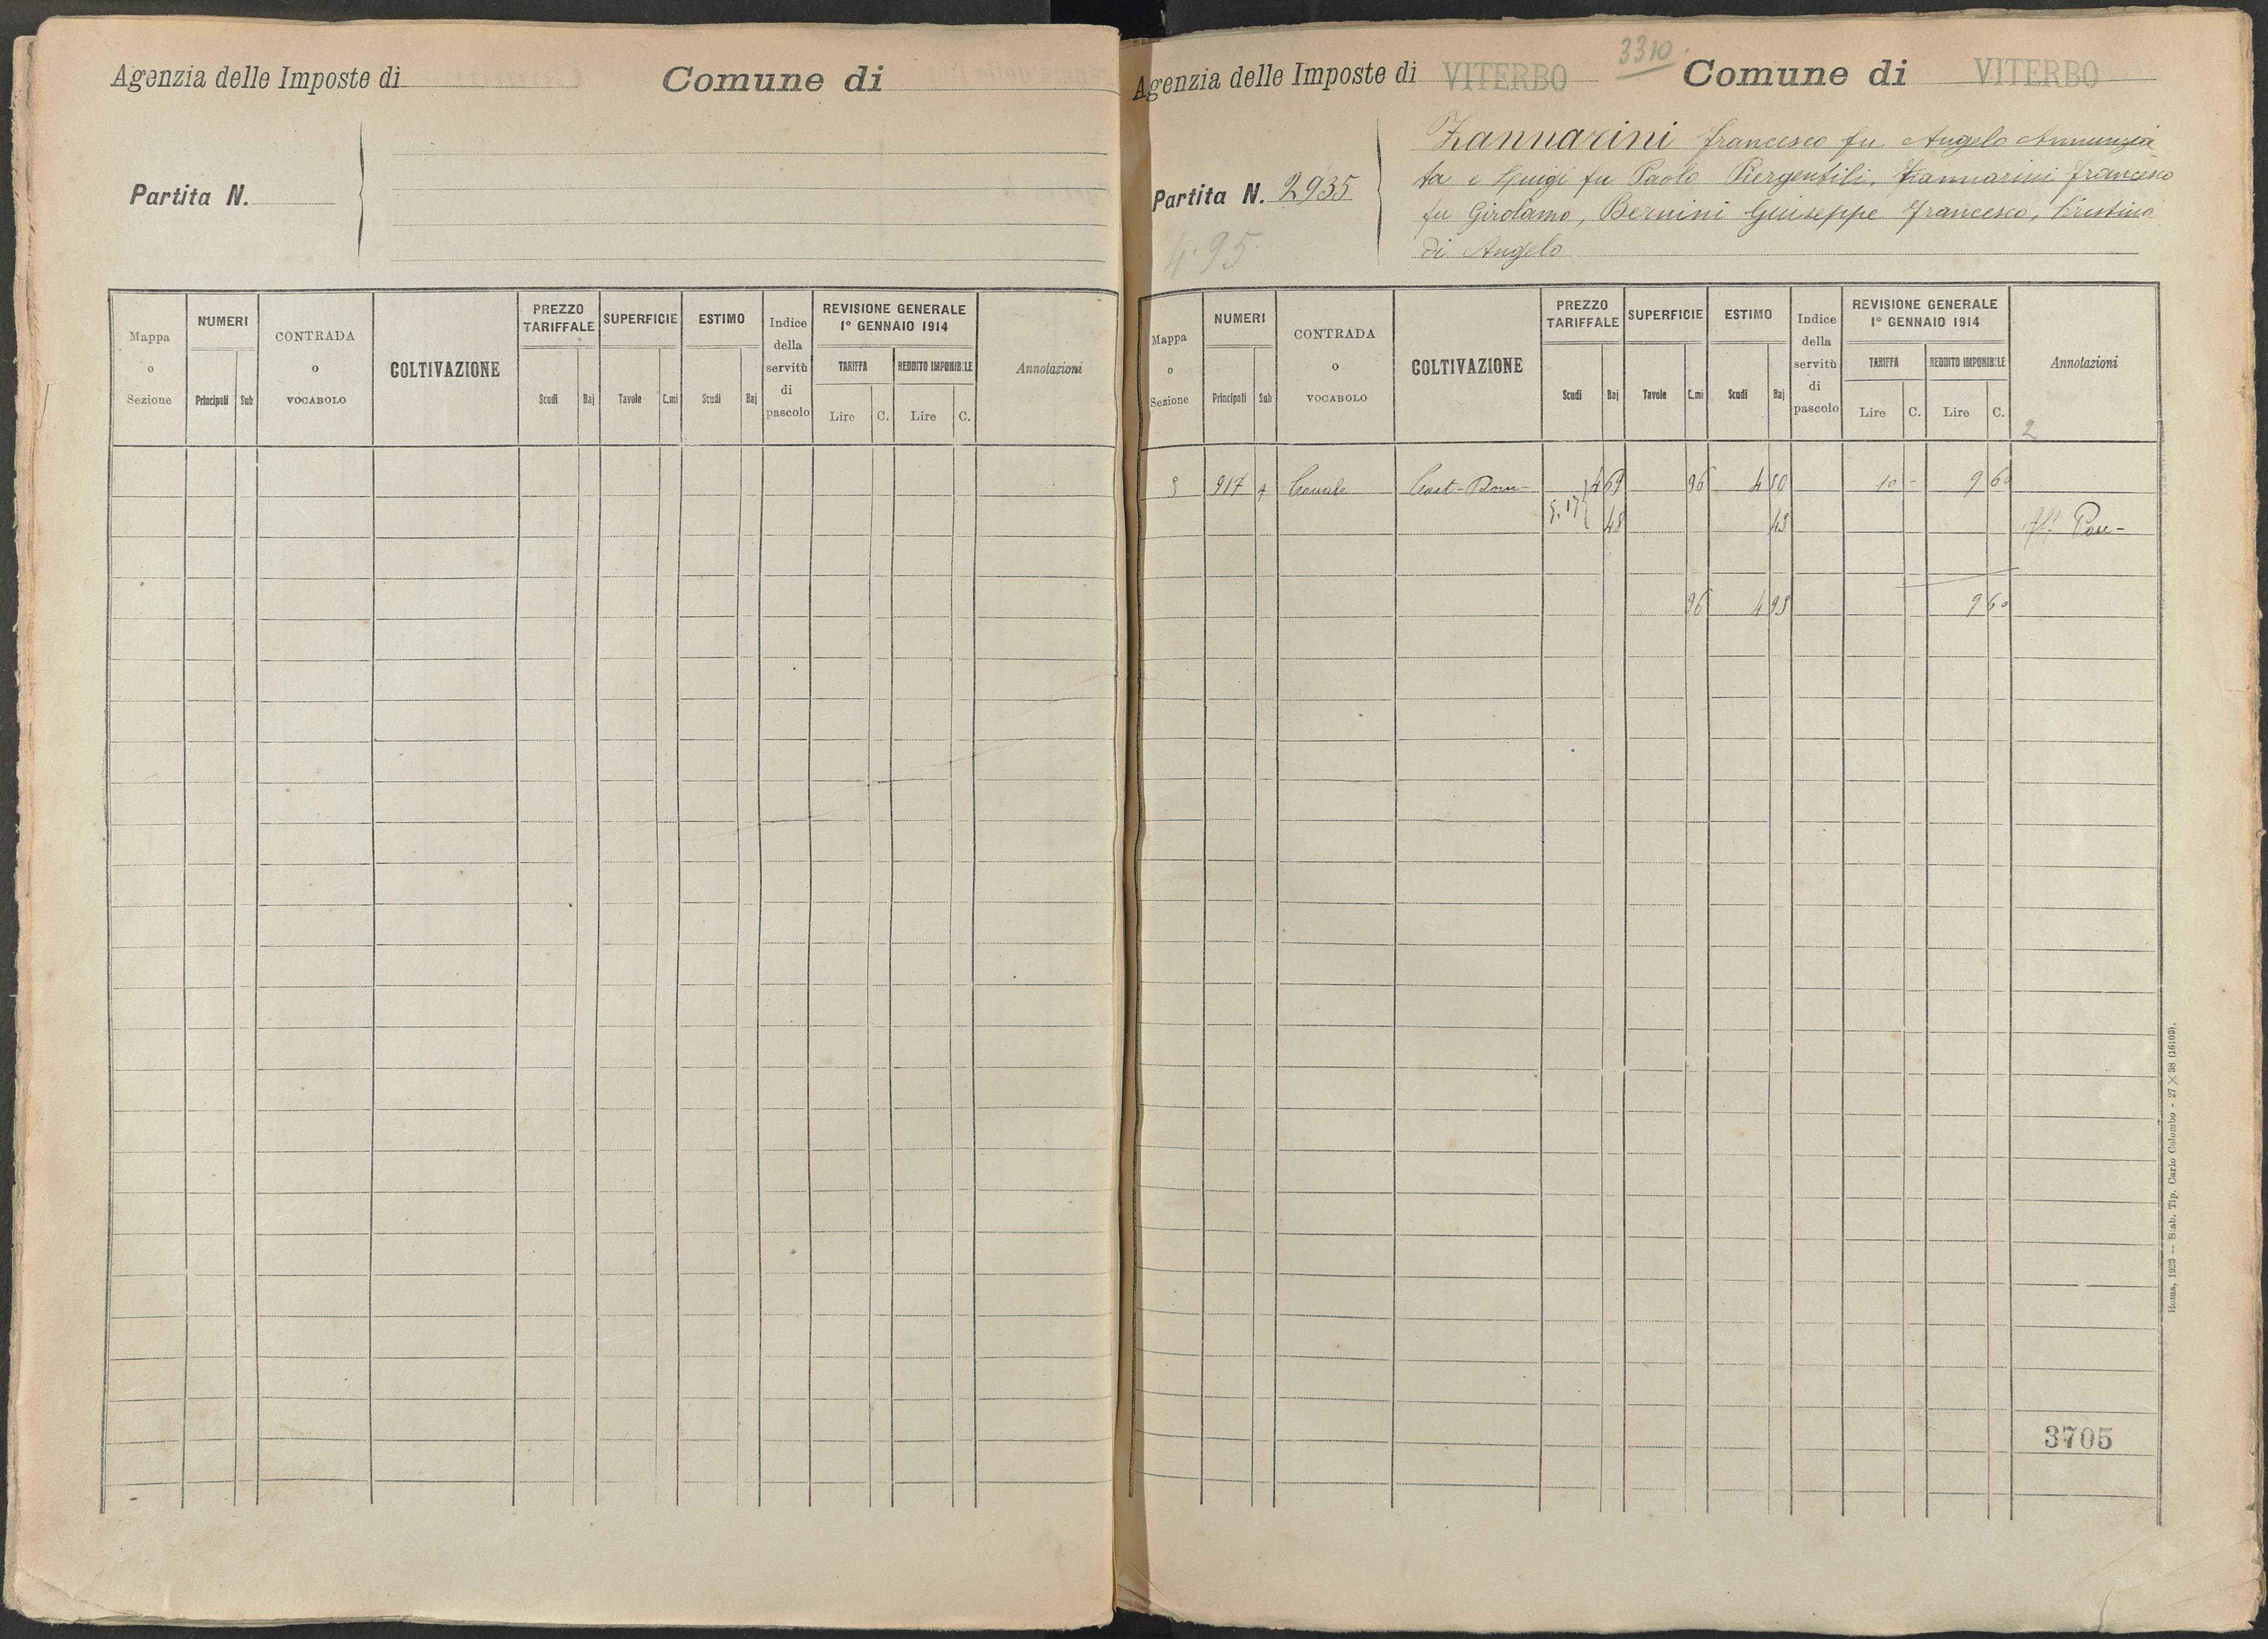 Agenzia delle Imposte di Comune di
Partita N.
Mappa o Sezione
NUMERI
Principali Sub
CONTRADA o VOCABOLO
COLTIVAZIONE
PREZZO TARIFFALE
Scudi Baj
SUPERFICIE
Tavole C.mi
ESTIMO
Scudi Baj
Indice della servitù di pascolo
REVISIONE GENERALE
1° GENNAIO 1914
TARIFFA REDDITO IMPONIBILE
Lire C. Lire C.
Annotazioni
3310.
Agenzia delle Imposte di VITERBO Comune di VITERBO
Zannarini Francesco fu Angelo Annunzia
ta e Luigi fu Paolo Piergentili, Zannarini Francesco
fu Girolamo, Bernini Giuseppe Francesco, Cristina
di Angelo
Partita N. 2935
4.95
Mappa o Sezione
NUMERI
Principali Sub
CONTRADA o VOCABOLO
COLTIVAZIONE
PREZZO TARIFFALE
Scudi Baj
SUPERFICIE
Tavole C.mi
ESTIMO
Scudi Baj
Indice della servitù di pascolo
REVISIONE GENERALE
1° GENNAIO 1914
TARIFFA REDDITO IMPONIBILE
Lire C. Lire C.
Annotazioni
2
917 4 Cast-Dom- 4 69 96 4 50 10 - 9 60
5.17 48
96 4 95 9 60
3705
Roma, 1923 — Stab. Tip. Carlo Colombo - 27 × 38 (16103).